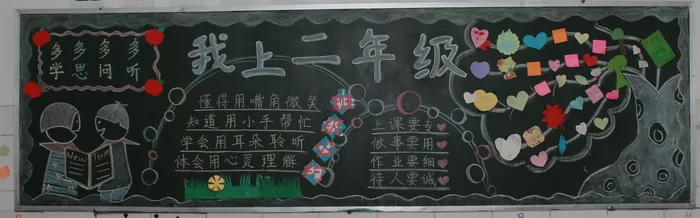 我上二年级
多多多多
学思问听
懂得用嘴角微笑
知道用小手帮忙
学会用耳朵聆听
体会用心灵理解
上课要专
做事要用
作业要细
待人要诚
New Term